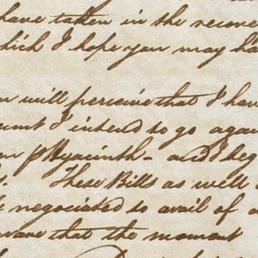 have taken in the recove
which I hope you may ha
will perceive that I hav
ount I intend to go agai
Hyacinth - and beg
These Bills as well a
negociated to avail of a
aware that the moment